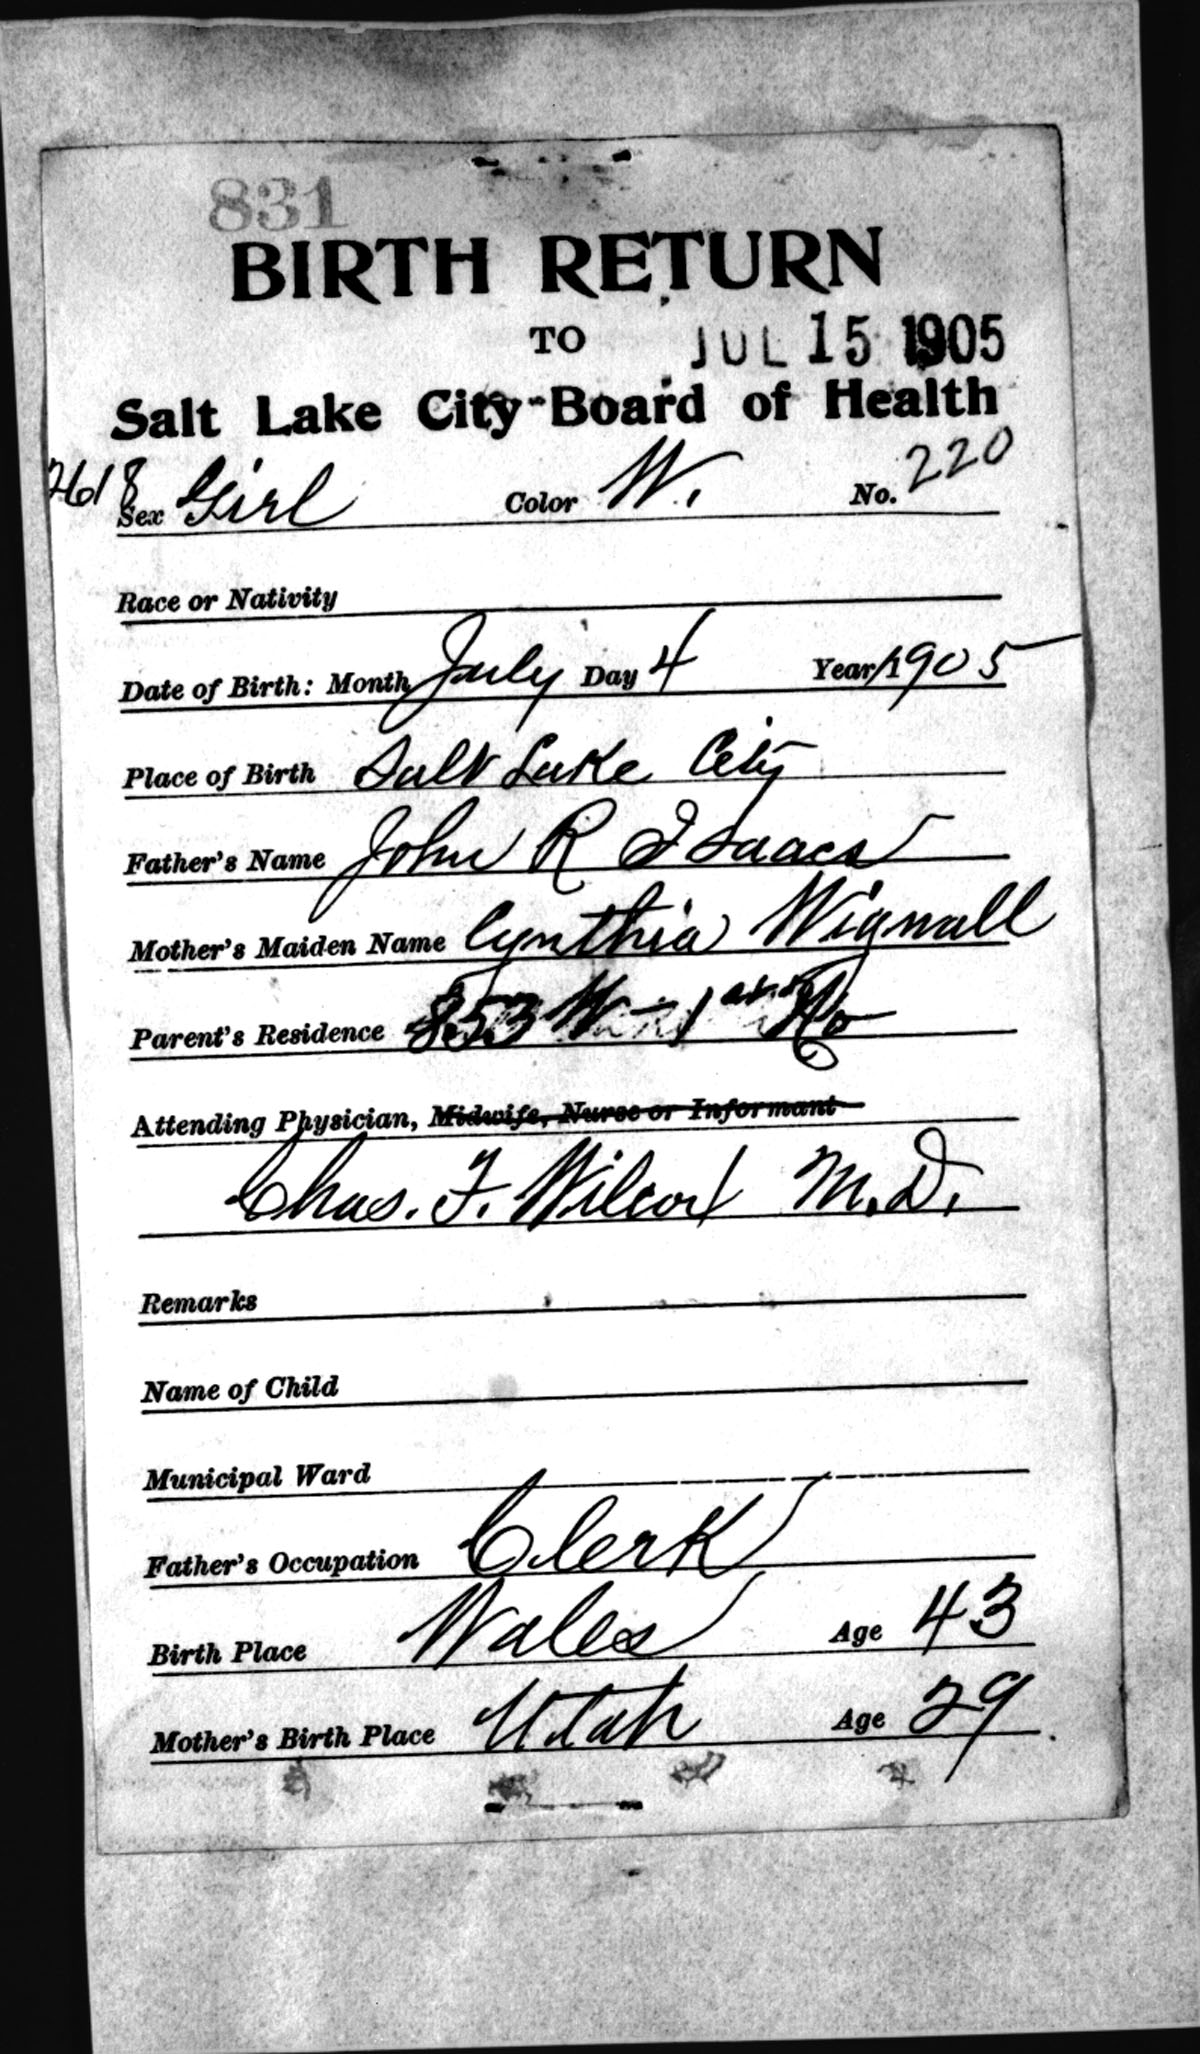 831
BIRTH RETURN
TO JUL 15 1905
Salt Lake City Board of Health
2618
Sex Girl Color W. No. 220
Race or Nativity
Date of Birth: Month July Day 4 Year 1905
Place of Birth Salt Lake City
Father's Name John R Isaacs
Mother's Maiden Name Cynthia Wignall
Parent's Residence 853 W 1st No
Attending Physician, Midwife, Nurse or Informant
Chas. F. Wilcox M.D.
Remarks
Name of Child
Municipal Ward
Father's Occupation Clerk
Birth Place Wales Age 43
Mother's Birth Place Utah Age 29